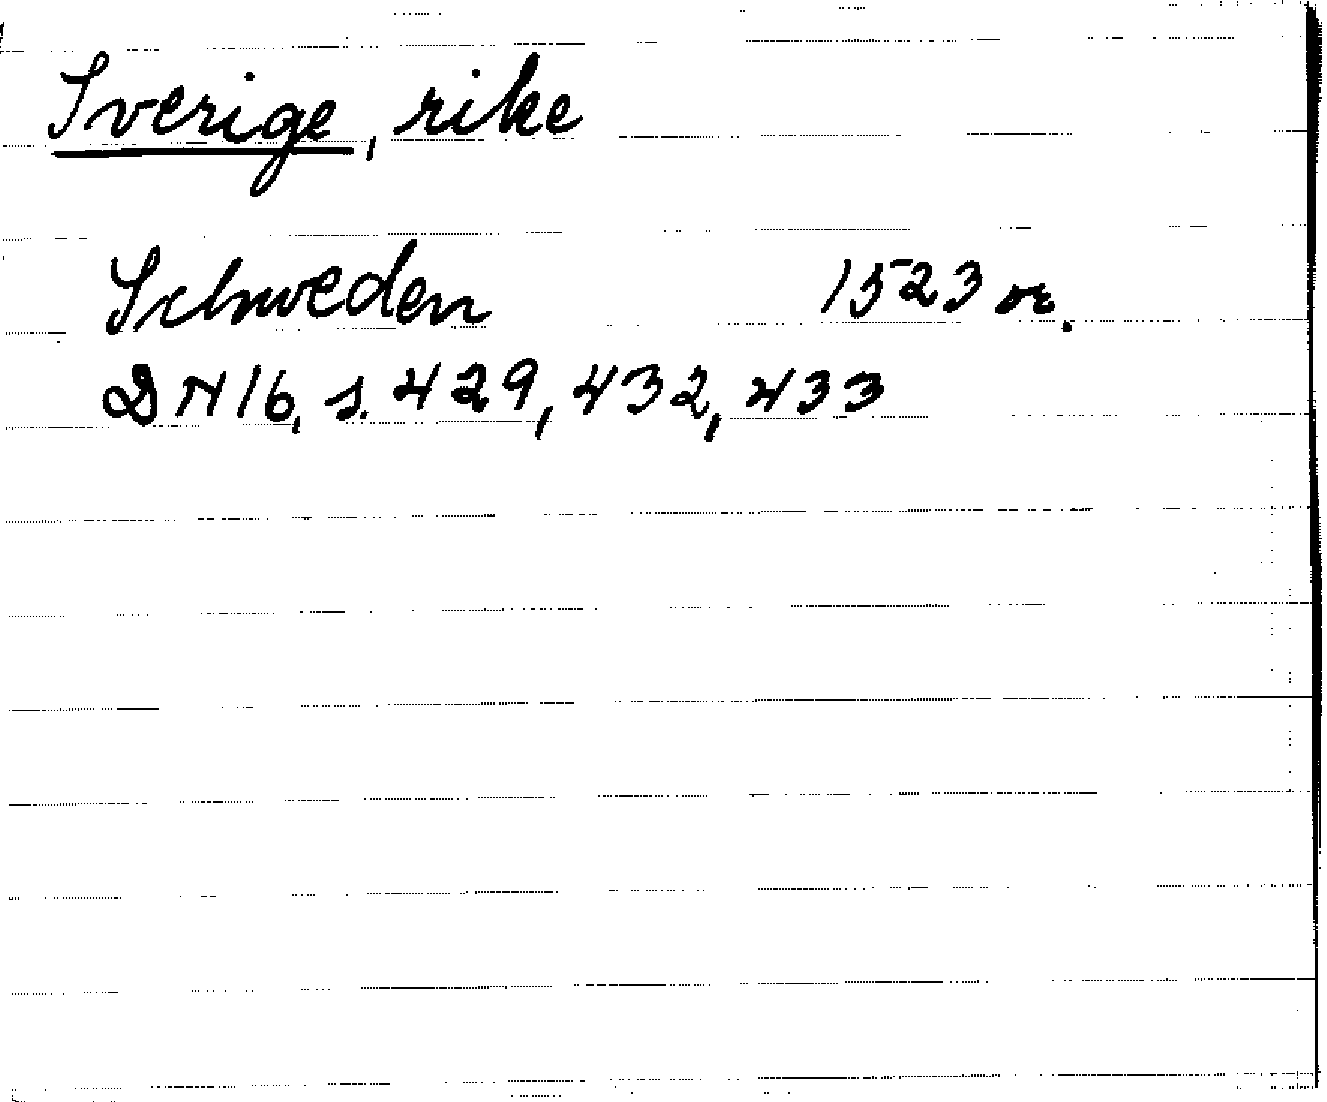 Sverige, rike
Schweden 1523 or.
DN 16, s. 429, 432, 433